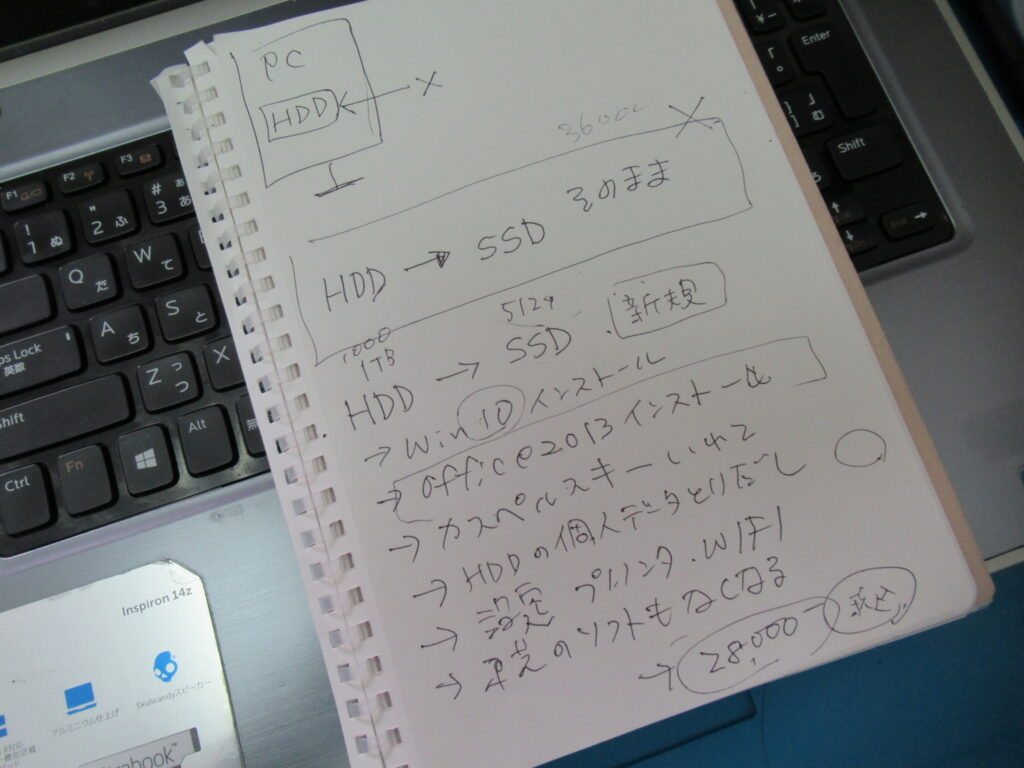 PC
HDD
×
36000
×
HDD → SSD そのまま
1000
1TB
512g
HDD → SSD 新規
→ Win10 インストール
→ office2013 インストール
→ カスペルスキーいれて
→ HDDの個人データとりだし
→ 設定 プリンタ.WIFI
→ のソフトもなくなる
→ 28,000 税込
F1
F2
F3
! 1 ぬ
" 2 ふ
# 3 あ
Q た
W て
A ち
S と
Z つ
X
Caps Lock
英数
Shift
Ctrl
Fn
Alt
Enter
Shift
End
Inspiron 14z
アルミニウム仕上げ
Skullcandyスピーカー